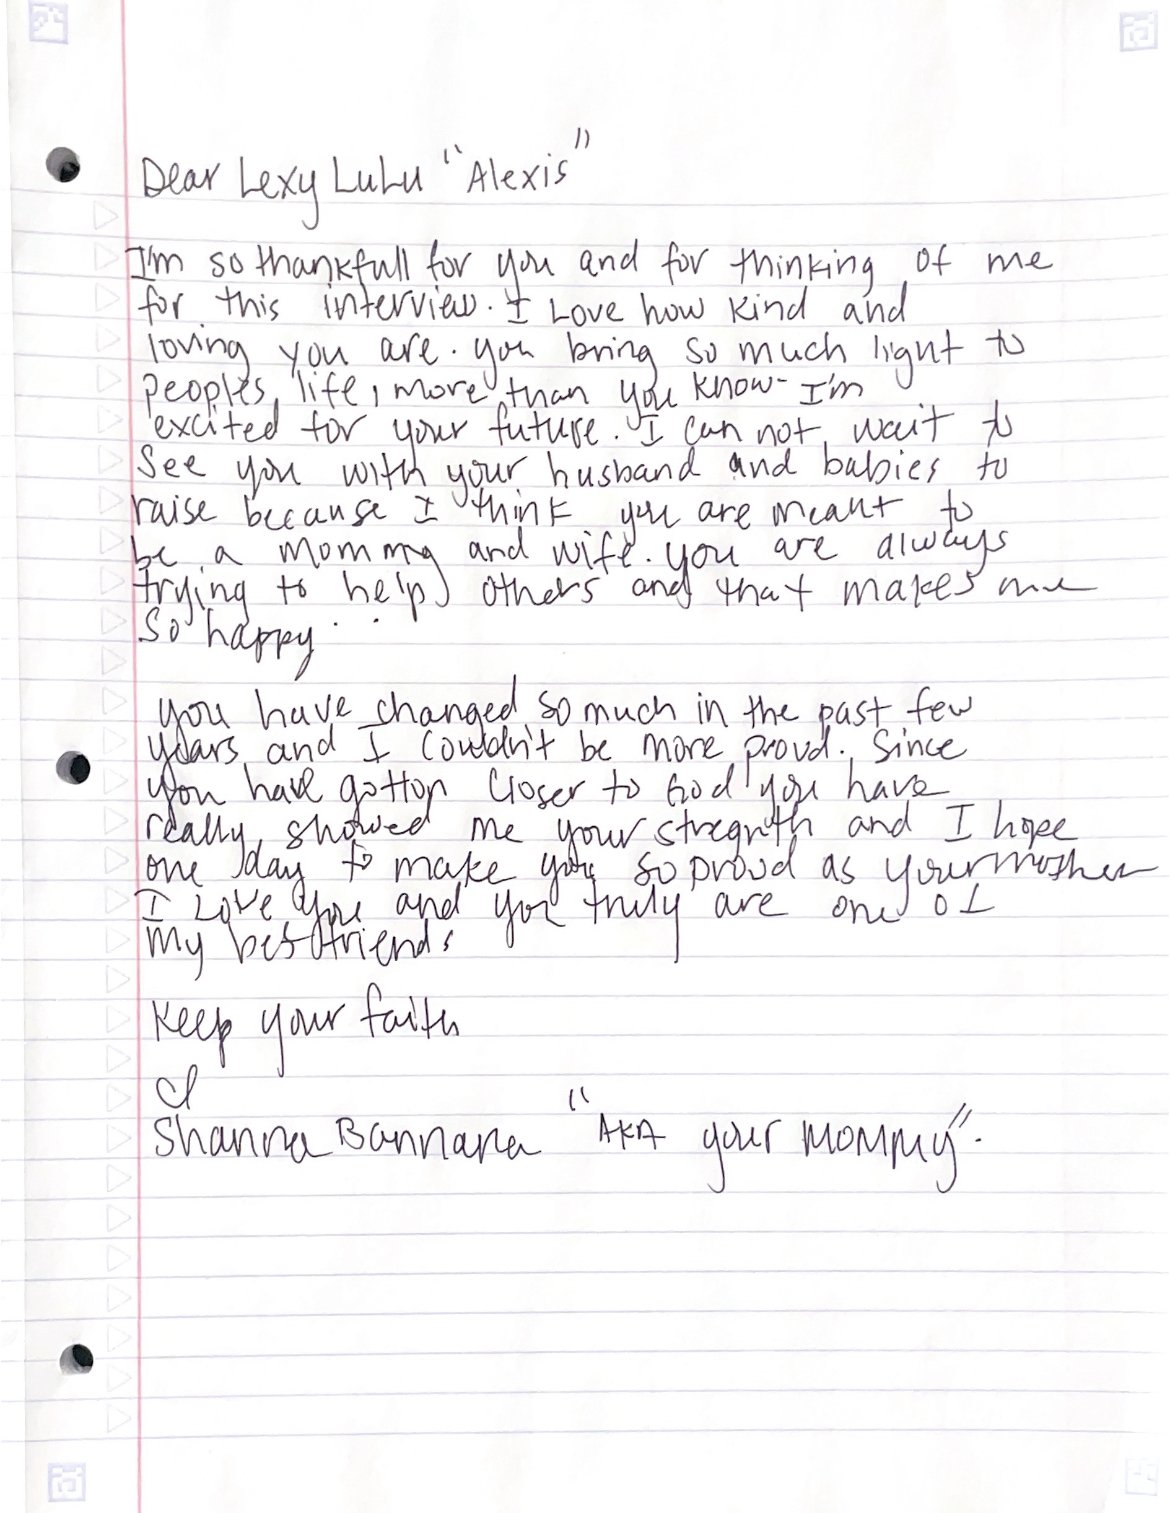 Dear Lexy LuLu "Alexis"
I'm so thankfull for you and for thinking of me
for this interview. I Love how kind and
loving you are. you bring so much light to
peoples life, more than you know- I'm
excited for your future. I can not wait to
see you with your husband and babies to
raise because I think you are meant to
be a mommy and wife. you are always
trying to help others and that makes me
so happy.
you have changed so much in the past few
years and I couldn't be more proud. Since
you have gotton closer to God you have
really showed me your stregnth and I hope
one day to make you so proud as your mother
I Love you and you truly are one of
my best friends
Keep your faith
Shanna Bannana "AKA your mommy".